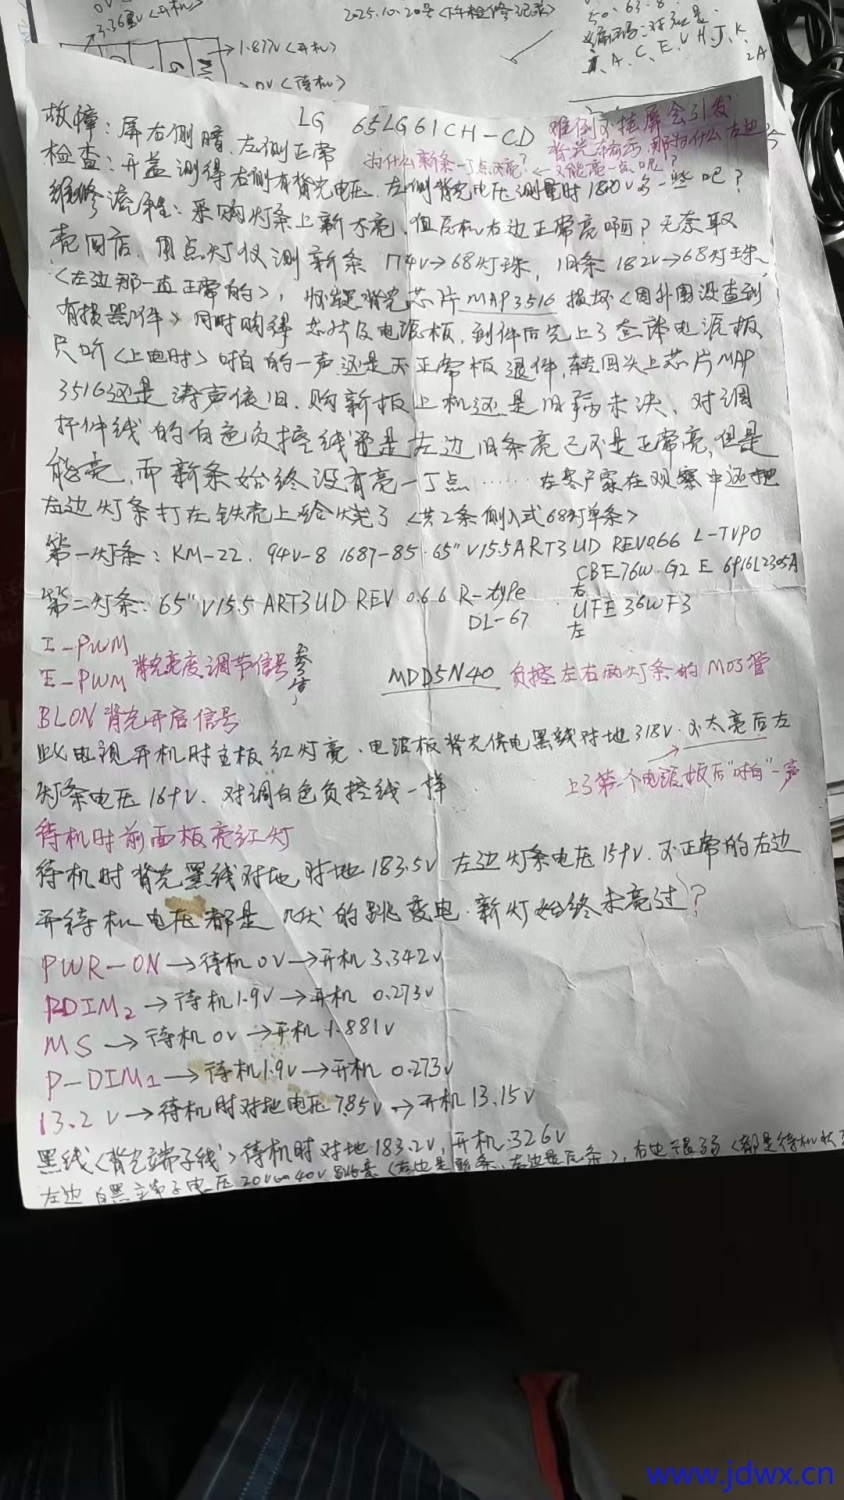 3.36V〈开机〉
2025.10.20号〈下午检修记录〉
1.877V〈开机〉
0V〈待机〉
A、C、E、V H、J、K、
2A
LG 65LG61CH-CD
难倒不接屏会引发
故障:屏右侧暗.左侧正常
背光不启示,那为什么左边
为什么新条一丁点不亮?←又能亮一点呢?
检查:开盖测得右侧有背光电压.左侧背光电压测量时180V多一些吧?
维修流程:采购灯条上新不亮.但原机右边正常亮啊?无奈取
壳回店.用点灯仪测新条174V→68灯珠,旧条182V→68灯珠、
〈左边那一直正常的〉,怀疑背光芯片MAP3516损坏〈因外围没查到
有损器件〉同时购得芯片及电源板,到件后先上了套牌电源板
只听〈上电时〉啪的一声还是不正常板退件,转回头上芯片MAP
3516还是涛声依旧.购新板上机还是旧病未决、对调
插件线的白色负控线都是左边旧条亮已不是正常亮,但是
能亮,而新条始终没有亮一丁点……在客户家在观察中还把
左边灯条打在铁壳上给烧了〈共2条侧入式68灯单条〉
第一灯条:KM-22.94V-8 1687-85.65" V15.5 ART3 UD REV0.66 L-TYPO
CBE76W.G2 E 6916L2305A
第二灯条:65" V15.5 ART3 UD REV 0.6 6 R-type 右 UFE 36W F3
DL-67 左
I-PWM
E-PWM 背光亮度调节信号 参考
MDD5N40 负控左右两灯条的MOS管
BLON背光开启信号
此电视开机时主板红灯亮.电源板背光供电黑线对地318V.不太亮后左
灯条电压169V.对调白色负控线一样
上了第一个电源板后"啪"一声
待机时前面板亮红灯
待机时背光黑线对地对地183.5V 左边灯条电压159V.不正常的右边
开待机电压都是几伏的跳变电.新灯始终未亮过?
PWR-ON→待机0V→开机3.342V
PDIM2→待机1.9V→开机 0.273V
MS→待机0V→开机1.881V
P-DIM1→待机1.9V→开机0.273V
13.2V→待机时对地电压7.85V→开机13.15V
黑线〈背光端子线〉待机时对地183.2V,开机326V
左边白黑端子电压20V~40V跳变〈右边是新条、左边是原条〉,右边很弱〈都是待机状
www.jdwx.cn